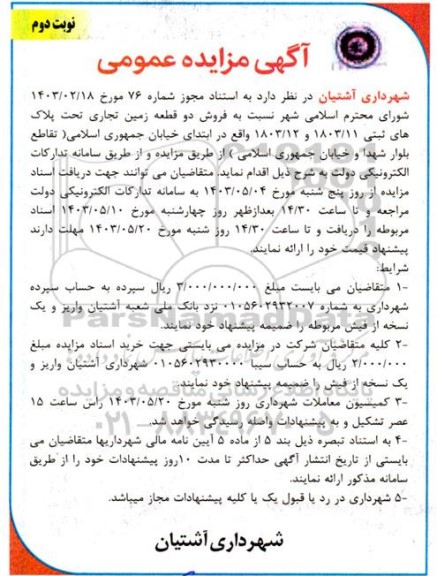 نوبت دوم
آگهی مزایده عمومی
شهرداری آشتیان در نظر دارد به استناد مجوز شماره ۷۶ مورخ ۱۴۰۳/۰۲/۱۸
شورای محترم اسلامی شهر نسبت به فروش دو قطعه زمین تجاری تحت پلاک
های ثبتی ۱۸۰۳/۱۱ و ۱۸۰۳/۱۲ واقع در ابتدای خیابان جمهوری اسلامی( تقاطع
بلوار شهدا و خیابان جمهوری اسلامی ) از طریق مزایده و از طریق سامانه تدارکات
الکترونیکی دولت به شرح ذیل اقدام نماید. متقاضیان می توانند جهت دریافت اسناد
مزایده از روز پنج شنبه مورخ ۱۴۰۳/۰۵/۰۴ به سامانه تدارکات الکترونیکی دولت
مراجعه و تا ساعت ۱۴/۳۰ بعدازظهر روز چهارشنبه مورخ ۱۴۰۳/۰۵/۱۰ اسناد
مربوطه را دریافت و تا ساعت ۱۴/۳۰ روز شنبه مورخ ۱۴۰۳/۰۵/۲۰ مهلت دارند
پیشنهاد قیمت خود را ارائه نمایند.
شرایط:
۱- متقاضیان می بایست مبلغ ۳/۰۰۰/۰۰۰/۰۰۰ ریال سپرده به حساب سپرده
شهرداری به شماره ۰۱۰۵۶۰۲۹۳۲۰۰۷ نزد بانک ملی شعبه آشتیان واریز و یک
نسخه از فیش مربوطه را ضمیمه پیشنهاد خود نمایند.
۲- کلیه متقاضیان شرکت در مزایده می بایستی جهت خرید اسناد مزایده مبلغ
۲/۰۰۰/۰۰۰ ریال به حساب سیبا ۰۱۰۵۶۰۲۹۳۰۰۰۰ شهرداری آشتیان واریز و
یک نسخه از فیش را ضمیمه پیشنهاد خود نمایند.
۳- کمیسیون معاملات شهرداری روز شنبه مورخ ۱۴۰۳/۰۵/۲۰ راس ساعت ۱۵
عصر تشکیل و به پیشنهادات واصله رسیدگی خواهد شد.
۴- به استناد تبصره ذیل بند ۵ از ماده ۵ آیین نامه مالی شهرداریها متقاضیان می
بایستی از تاریخ انتشار آگهی حداکثر تا مدت ۱۰روز پیشنهادات خود را از طریق
سامانه مذکور ارائه نمایند.
۵- شهرداری در رد یا قبول یک یا کلیه پیشنهادات مجاز میباشد.
شهرداری آشتیان
ParsNamadData
پایگاه اطلاع رسانی مناقصه و مزایده
۰۲۱-۸۸۳۴۹۶۷۰-۵